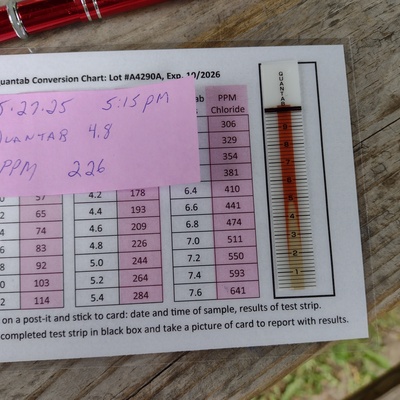 Quantab Conversion Chart: Lot #A4290A, Exp. 10/2026
5-27-25 5:15 PM
QUANTAB 4.8
PPM 226
PPM
Chloride
306
329
354
381
57 4.2 178 6.4 410
65 4.4 193 6.6 441
74 4.6 209 6.8 474
83 4.8 226 7.0 511
92 5.0 244 7.2 550
103 5.2 264 7.4 593
114 5.4 284 7.6 641
QUANTAB
9
8
7
6
5
4
3
2
1
on a post-it and stick to card: date and time of sample, results of test strip.
completed test strip in black box and take a picture of card to report with results.